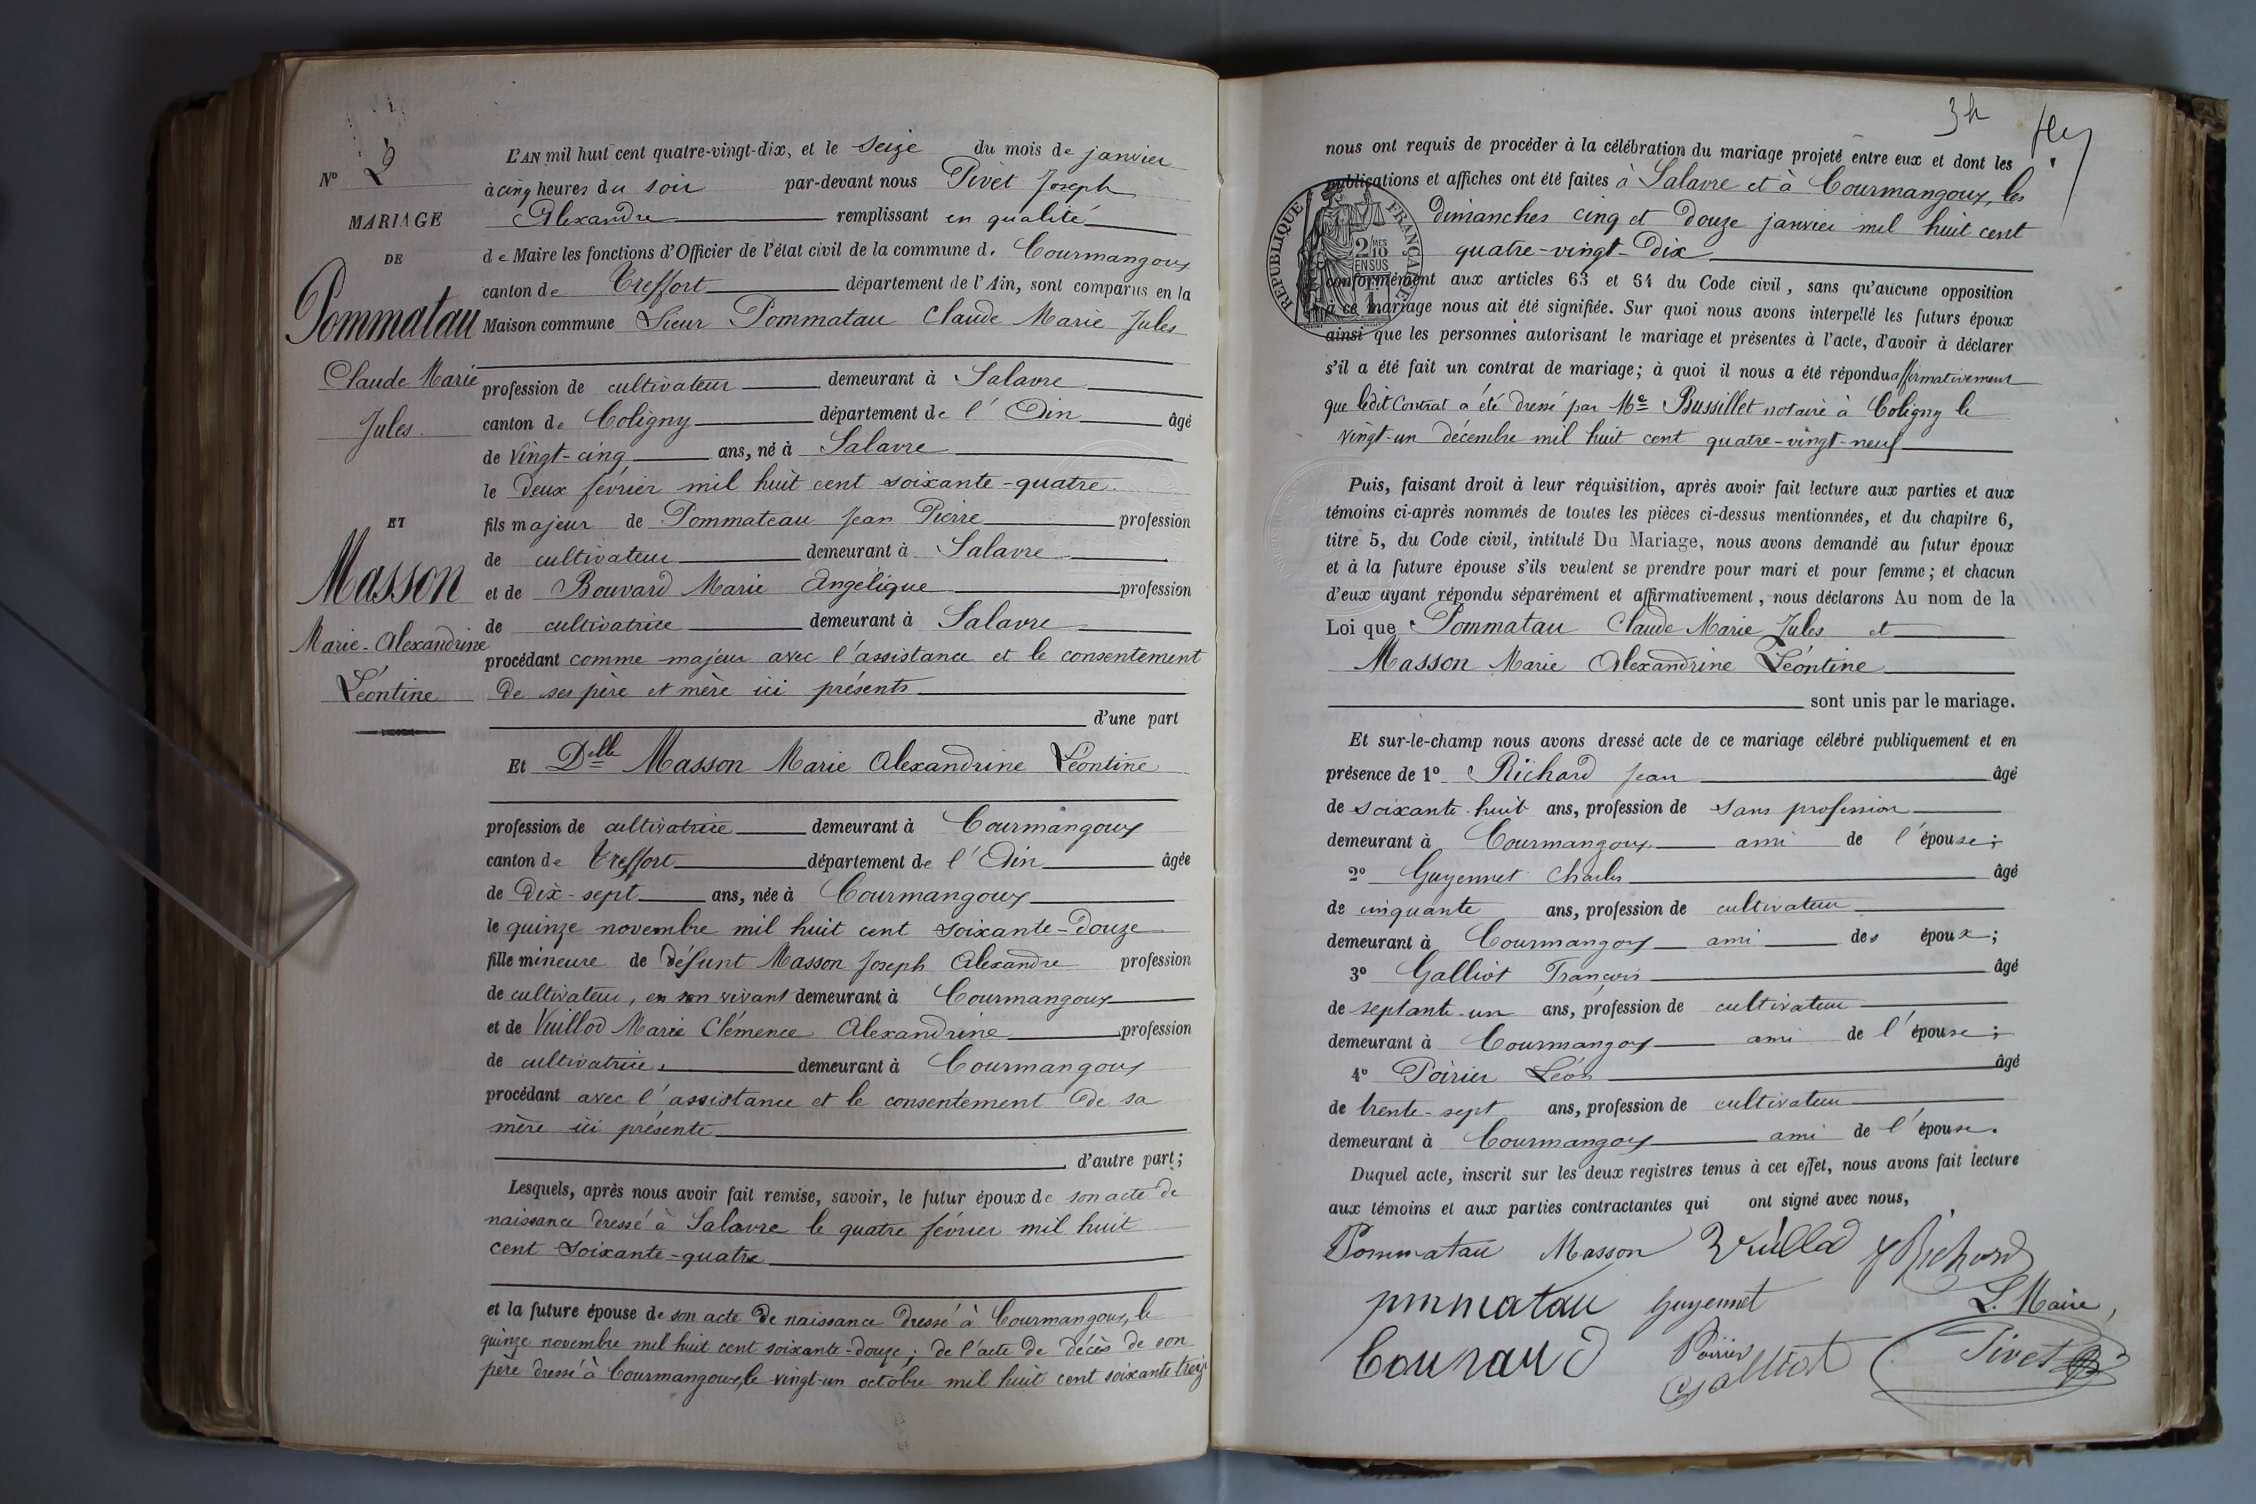 N° 2
MARIAGE
DE
Pommatau
Claude Marie
Jules
ET
Masson
Marie-Alexandrine
Léontine
L'AN mil huit cent quatre-vingt-dix, et le seize du mois de janvier
à cinq heures du soir par-devant nous Pivet Joseph
Alexandre remplissant en qualité
de Maire les fonctions d'Officier de l'état civil de la commune d. Courmangoux
canton de Treffort département de l'Ain, sont comparus en la
Maison commune Sieur Pommatau Claude Marie Jules
profession de cultivateur demeurant à Salavre
canton de Coligny département de l'Ain âgé
de vingt-cinq ans, né à Salavre
le deux février mil huit cent soixante-quatre
fils majeur de Pommateau Jean Pierre profession
de cultivateur demeurant à Salavre
et de Bouvard Marie Angélique profession
de cultivatrice demeurant à Salavre
procédant comme majeur avec l'assistance et le consentement
de ses père et mère ici présents
d'une part
Et Delle Masson Marie Alexandrine Léontine
profession de cultivatrice demeurant à Courmangoux
canton de Treffort département de l'Ain âgée
de dix-sept ans, née à Courmangoux
le quinze novembre mil huit cent soixante-douze
fille mineure de défunt Masson Joseph Alexandre profession
de cultivateur, en son vivant demeurant à Courmangoux
et de Vuillod Marie Clémence Alexandrine profession
de cultivatrice, demeurant à Courmangoux
procédant avec l'assistance et le consentement de sa
mère ici présente
d'autre part;
Lesquels, après nous avoir fait remise, savoir, le futur époux de son acte de
naissance dressé à Salavre le quatre février mil huit
cent soixante-quatre
et la future épouse de son acte de naissance dressé à Courmangoux, le
quinze novembre mil huit cent soixante-douze; de l'acte de décès de son
père dressé à Courmangoux, le vingt-un octobre mil huit cent soixante treize
nous ont requis de procéder à la célébration du mariage projeté entre eux et dont les
publications et affiches ont été faites à Salavre et à Courmangoux, les
dimanches cinq et douze janvier mil huit cent
quatre-vingt-dix
RÉPUBLIQUE FRANÇAISE
2/10
EN SUS
conformément aux articles 63 et 64 du Code civil, sans qu'aucune opposition
à ce mariage nous ait été signifiée. Sur quoi nous avons interpellé les futurs époux
ainsi que les personnes autorisant le mariage et présentes à l'acte, d'avoir à déclarer
s'il a été fait un contrat de mariage; à quoi il nous a été répondu affirmativement
que ledit Contrat a été dressé par Me Bussillet notaire à Coligny le
vingt-un décembre mil huit cent quatre-vingt-neuf
Puis, faisant droit à leur réquisition, après avoir fait lecture aux parties et aux
témoins ci-après nommés de toutes les pièces ci-dessus mentionnées, et du chapitre 6,
titre 5, du Code civil, intitulé Du Mariage, nous avons demandé au futur époux
et à la future épouse s'ils veulent se prendre pour mari et pour femme; et chacun
d'eux ayant répondu séparément et affirmativement, nous déclarons Au nom de la
Loi que Pommatau Claude Marie Jules et
Masson Marie Alexandrine Léontine
sont unis par le mariage.
Et sur-le-champ nous avons dressé acte de ce mariage célébré publiquement et en
présence de 1° Richard Jean âgé
de soixante-huit ans, profession de sans profession
demeurant à Courmangoux ami de l'épouse;
2° Guyennet Charles âgé
de cinquante ans, profession de cultivateur
demeurant à Courmangoux ami des époux;
3° Galliot François âgé
de septante-un ans, profession de cultivateur
demeurant à Courmangoux ami de l'épouse;
4° Poirier Léon âgé
de trente-sept ans, profession de cultivateur
demeurant à Courmangoux ami de l'épouse.
Duquel acte, inscrit sur les deux registres tenus à cet effet, nous avons fait lecture
aux témoins et aux parties contractantes qui ont signé avec nous,
Pommatau Masson Vuillod Richard
pmmatau Guyennet L. Maire,
Poirier Pivet
Galliot